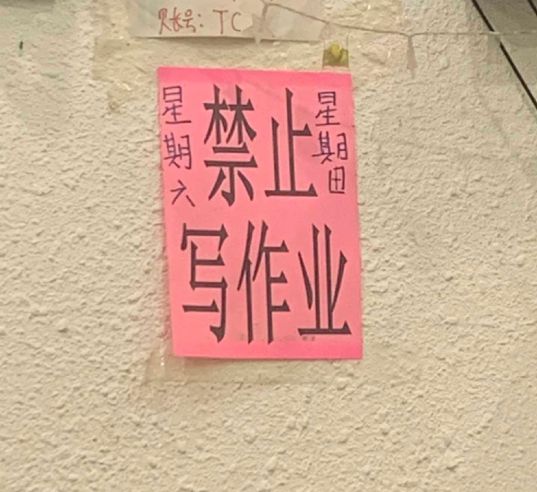 账号：TC
星期六
禁止
星期田
写作业